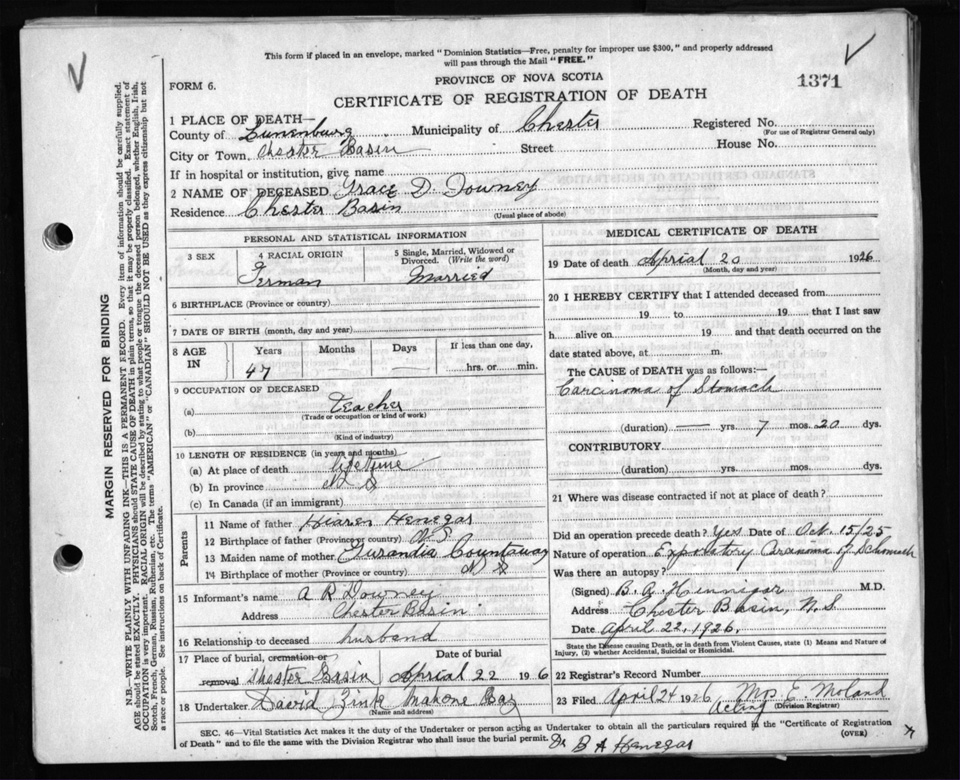 This form if placed in an envelope, marked "Dominion Statistics—Free, penalty for improper use $300," and properly addressed
will pass through the Mail "FREE."
FORM 6.
PROVINCE OF NOVA SCOTIA
1371
CERTIFICATE OF REGISTRATION OF DEATH
1 PLACE OF DEATH—
County of Lunenburg Municipality of Chester Registered No.
(For use of Registrar General only)
City or Town, Chester Basin Street House No.
If in hospital or institution, give name
2 NAME OF DECEASED Grace D Downey
Residence Chester Basin
(Usual place of abode)
PERSONAL AND STATISTICAL INFORMATION
3 SEX 4 RACIAL ORIGIN 5 Single, Married, Widowed or Divorced. (Write the word)
German Married
6 BIRTHPLACE (Province or country)
7 DATE OF BIRTH (month, day and year)
8 AGE IN Years Months Days If less than one day,
47 — — hrs. or min.
9 OCCUPATION OF DECEASED
(a) teacher
(Trade or occupation or kind of work)
(b)
(Kind of industry)
10 LENGTH OF RESIDENCE (in years and months)
(a) At place of death lifetime
(b) In province N S
(c) In Canada (if an immigrant)
Parents
11 Name of father Hiaren Henegar
12 Birthplace of father (Province or country) N.S.
13 Maiden name of mother Countaway
14 Birthplace of mother (Province or country) N S
15 Informant's name A R Downey
Address Chester Basin
16 Relationship to deceased husband
17 Place of burial, cremation or removal Date of burial
Chester Basin Aprial 22 1926
18 Undertaker David Zink Mahone Bay
(Name and address)
MEDICAL CERTIFICATE OF DEATH
19 Date of death Aprial 20 1926
(Month, day and year)
20 I HEREBY CERTIFY that I attended deceased from
19 to 19 that I last saw
h alive on 19 and that death occurred on the
date stated above, at m.
The CAUSE OF DEATH was as follows:—
Carcinoma of Stomach
(duration) — yrs. 7 mos. 20 dys.
CONTRIBUTORY
(duration) yrs. mos. dys.
21 Where was disease contracted if not at place of death?
Did an operation precede death? Yes Date of Oct. 15/25
Nature of operation Exploratory of Stomach
Was there an autopsy?
(Signed) B. A. Hennigar M.D.
Address Chester Basin, N.S
Date April 22, 1926.
State the Disease causing Death, or in death from Violent Causes, state (1) Means and Nature of
Injury, (2) whether Accidental, Suicidal or Homicidal.
22 Registrar's Record Number
23 Filed April 24 1926 Mrs E. Moland
Acting (Division Registrar)
SEC. 46—Vital Statistics Act makes it the duty of the Undertaker or person acting as Undertaker to obtain all the particulars required in the "Certificate of Registration
of Death" and to file the same with the Division Registrar who shall issue the burial permit. (OVER)
Dr B A Henegar
MARGIN RESERVED FOR BINDING
N.B.—WRITE PLAINLY WITH UNFADING INK—THIS IS A PERMANENT RECORD. Every item of information should be carefully supplied.
AGE should be stated EXACTLY. PHYSICIANS should STATE CAUSE OF DEATH in plain terms, so that it may be properly classified. Exact statement of
OCCUPATION is very important. RACIAL ORIGIN will be described by stating to what people or tongue the deceased person belonged, whether English, Irish,
Scotch, French, German, Russian, Ruthenian, etc. The terms "AMERICAN" or "CANADIAN" SHOULD NOT BE USED as they express citizenship but not
a race or people. See instructions on back of Certificate.